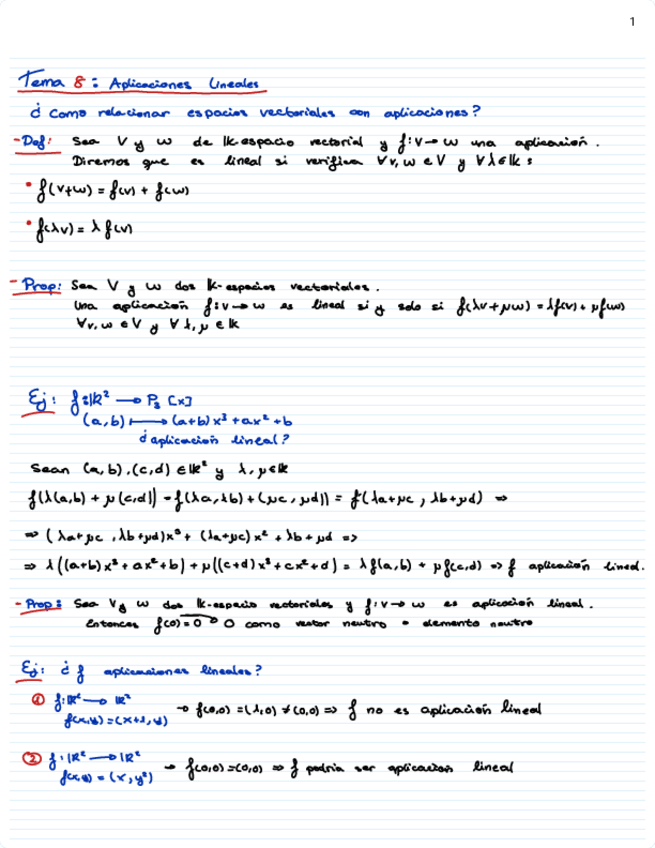 1
Tema 8: Aplicaciones Lineales
¿Como relacionar espacios vectoriales con aplicaciones?
- Def: Sea V y W de lk-espacio vectorial y f: V → W una aplicación.
Diremos que es lineal si verifica ∀v, w ∈ V y ∀λ ∈ lk:
• f(v+w) = f(v) + f(w)
• f(λv) = λ f(v)
- Prop: Sea V y W dos lk-espacios vectoriales.
Una aplicación f: V → W es lineal si y solo si f(λv + μw) = λf(v) + μf(w)
∀v, w ∈ V y ∀ λ, μ ∈ lk
Ej: f: lk² → P₃ [x]
(a, b) ↦ (a+b)x³ + ax² + b
¿aplicación lineal?
Sean (a, b), (c, d) ∈ lk² y λ, μ ∈ lk
f(λ(a, b) + μ(c, d)) = f(λa, λb) + (μc, μd)) = f(λa + μc, λb + μd) ⇒
⇒ (λa + μc, λb + μd)x³ + (λa + μc)x² + λb + μd ⇒
⇒ λ((a+b)x³ + ax² + b) + μ((c+d)x³ + cx² + d) = λf(a, b) + μf(c, d) ⇒ f aplicación lineal.
- Prop: Sea V y W dos lk-espacio vectoriales y f: V → W es aplicación lineal.
Entonces f(0) = 0 → 0 como vector neutro o elemento neutro
Ej: ¿f aplicaciones lineales?
① f: lR² → lR² → f(0,0) = (1,0) ≠ (0,0) ⇒ f no es aplicación lineal
f(x,y) = (x+1, y)
② f: lR² → lR² → f(0,0) = (0,0) ⇒ f podria ser aplicación lineal
f(x,y) = (x, y²)